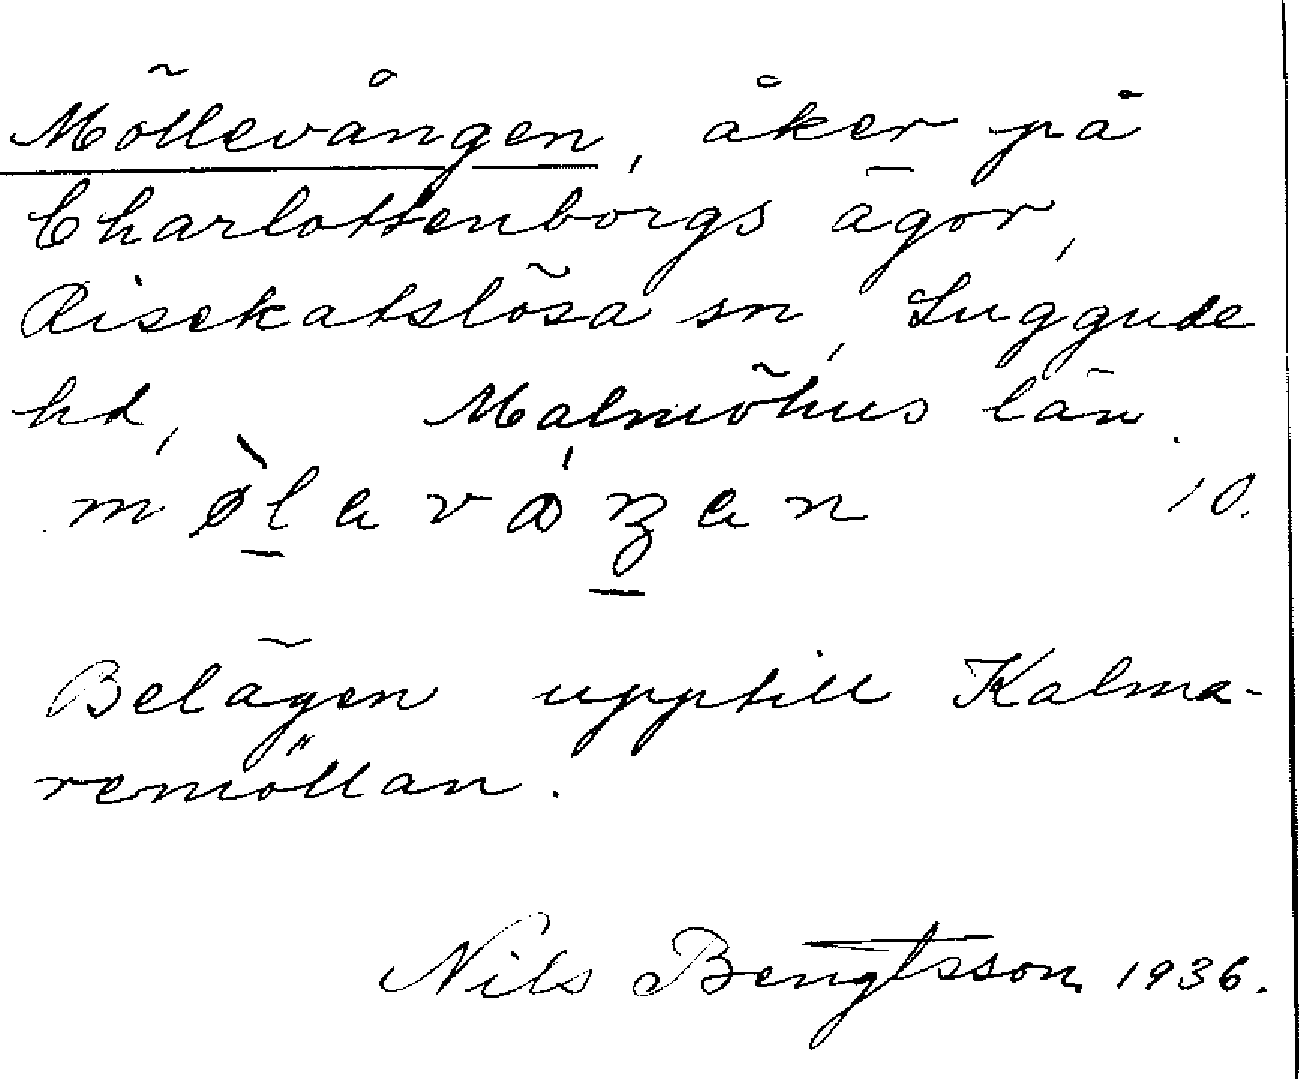 Möllevången, åker på
Charlottenborgs ägor,
Risekatslösa sn, Luggude
hd, Malmöhus län.
mø̀lavåŋan 10.
Belägen upptill Kalma-
remöllan.
Nils Bengtsson 1936.